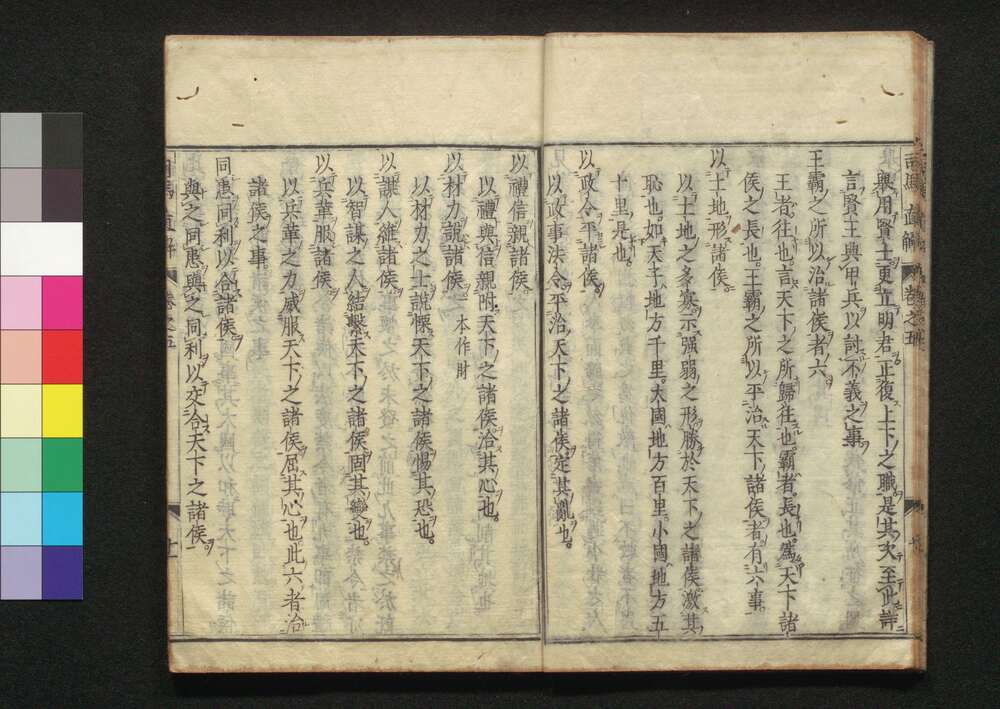 擧用賢士更立明君正復上下之職是其次至此詳
言賢王興甲兵以討不義之事
王霸之所以治諸侯者六
王者往也言天下之所歸往也霸者長也爲天下諸
侯之長也王霸之所以平治天下諸侯者有六事
以土地形諸侯
以土地之多寡示强弱之形勝於天下之諸侯激其
恥也如天子地方千里大國地方百里小國地方五
十里是也
以政令平諸侯
以政事法令平治天下之諸侯定其亂也
以禮信親諸侯
以禮與信親附天下之諸侯洽其心也
以材力說諸侯 一本作財
以材力之士說懌天下之諸侯惕其恐也
以謀人維諸侯
以智謀之人結繫天下之諸侯固其變也
以兵革服諸侯
以兵革之力威服天下之諸侯屈其心也此六者治
諸侯之事
同患同利以合諸侯
與之同患與之同利以交合天下之諸侯